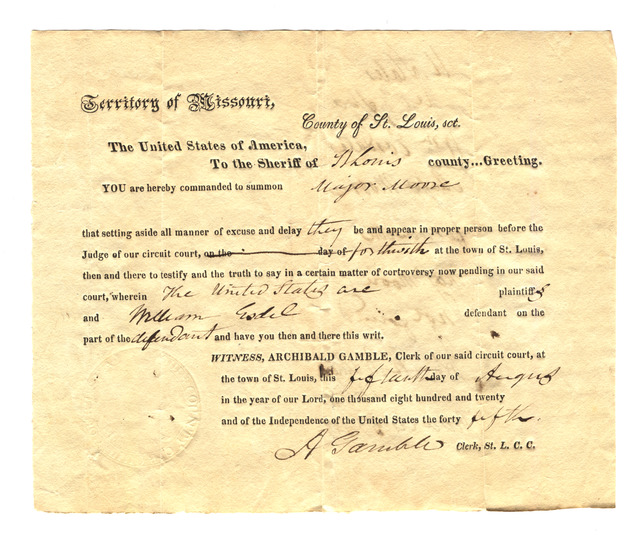 Territory of Missouri,
County of St. Louis, sct.
The United States of America,
To the Sheriff of St Louis county...Greeting.
YOU are hereby commanded to summon Major Moore
that setting aside all manner of excuse and delay they be and appear in proper person before the
Judge of our circuit court, on the day of forthwith at the town of St. Louis,
then and there to testify and the truth to say in a certain matter of controversy now pending in our said
court, wherein The United States are plaintiffs
and William Esdel defendant on the
part of the defendant and have you then and there this writ.
WITNESS, ARCHIBALD GAMBLE, Clerk of our said circuit court, at
the town of St. Louis, this fifteenth day of August
in the year of our Lord, one thousand eight hundred and twenty
and of the Independence of the United States the forty fifth.
A Gamble Clerk, St. L. C. C.